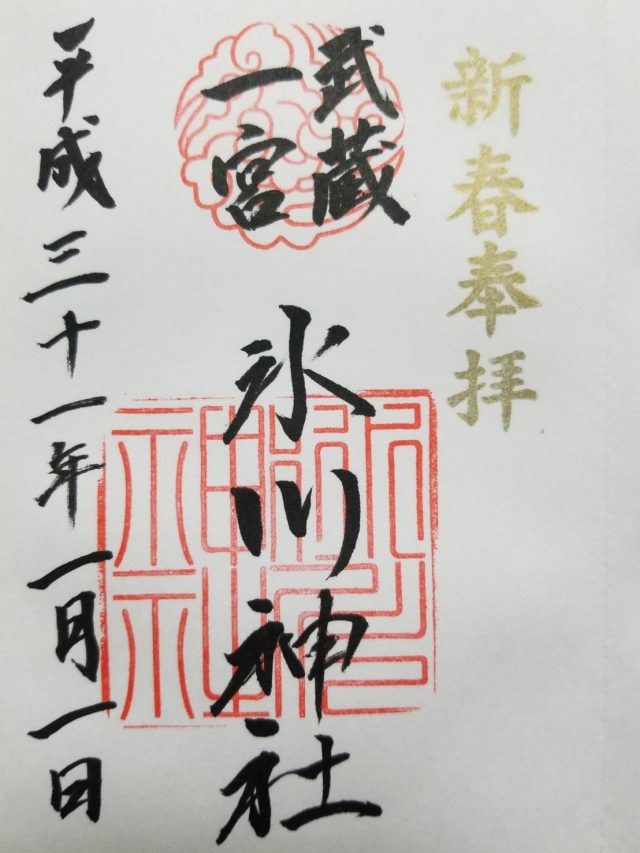 新春奉拝
武蔵
一宮
氷川神社
平成三十一年一月一日